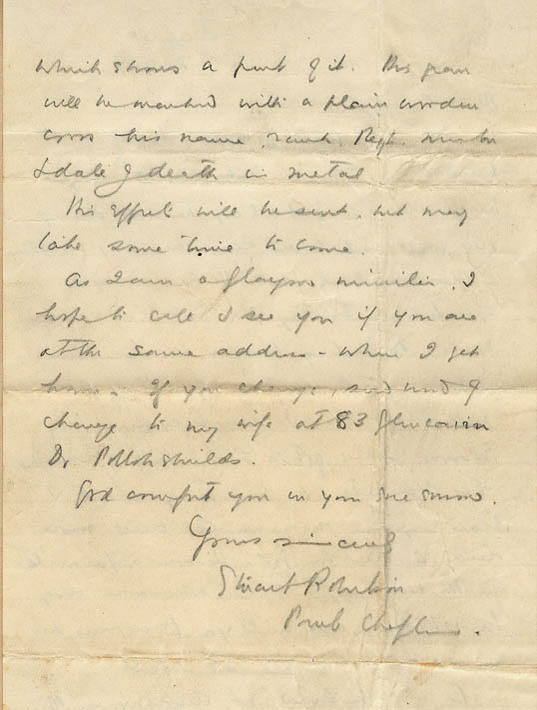 which shows a part of it. His grave
will be marked with a plain wooden
cross his name, rank, Regt. number
& date of death in metal
His effects will be sent, but may
take some time to come.
As I am a Glasgow minister, I
hope to call & see you if you are
at the same address - when I get
home. If you change, send word of
change to my wife at 83
Dr. Pollokshields.
God comfort you in your sore sorrow.
Yours sincerely
Stuart Robertson
Presb Chaplain.